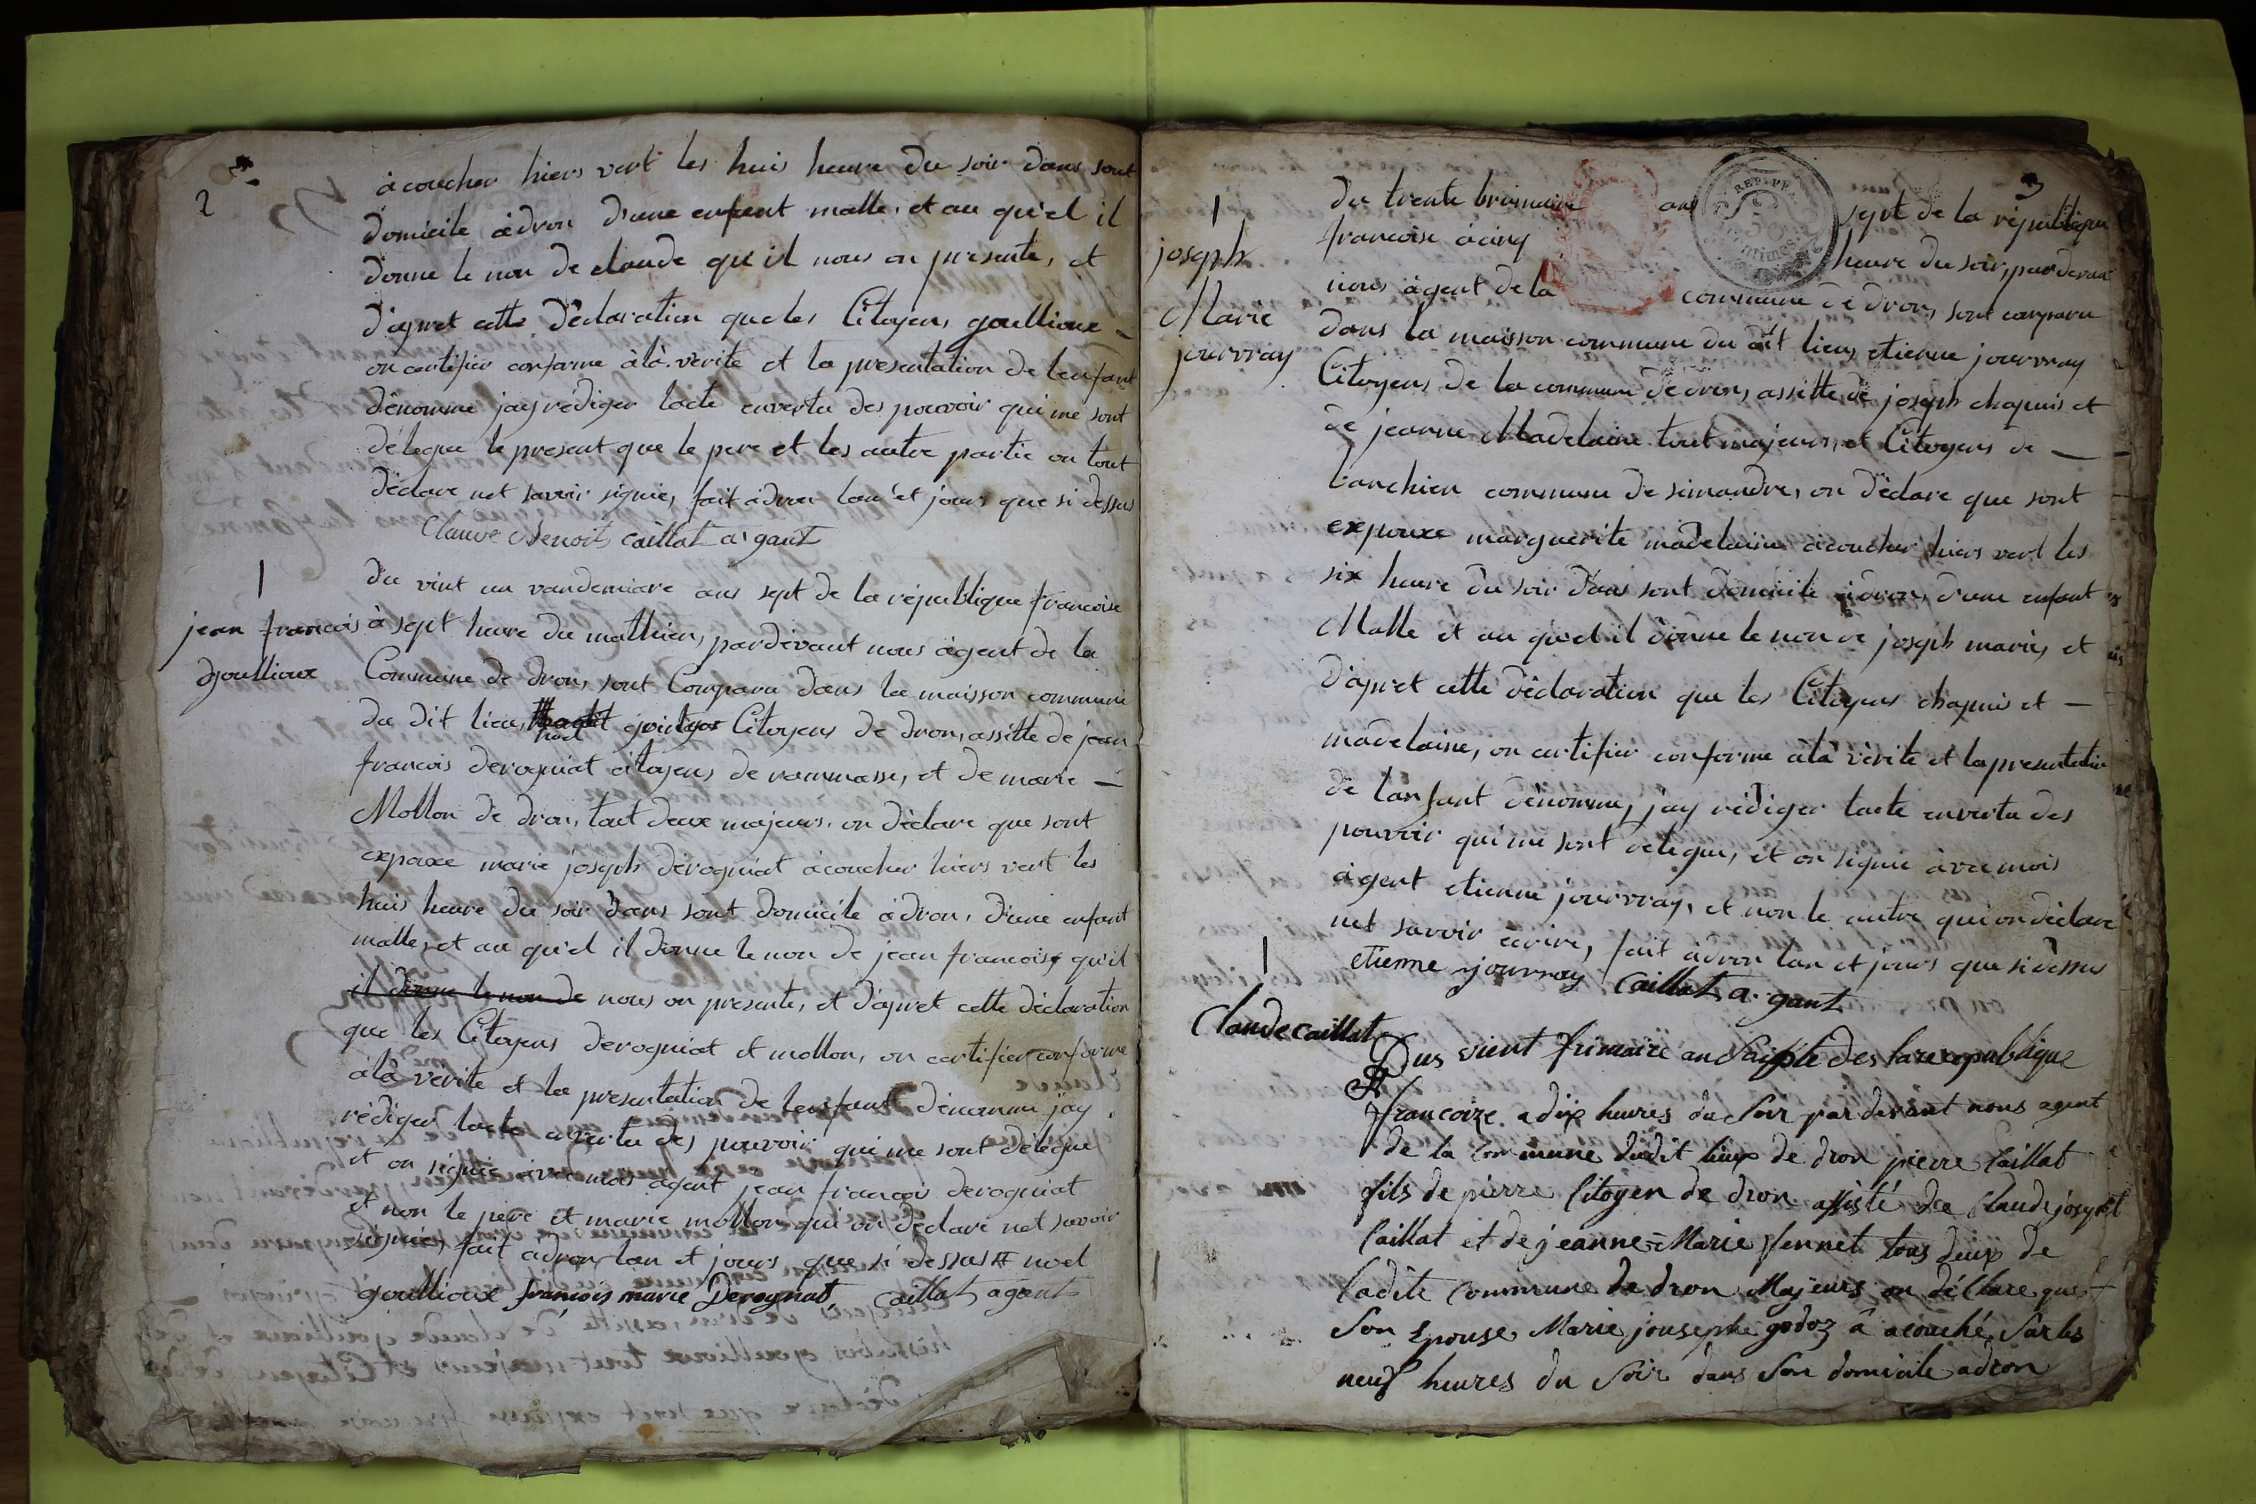 2
à coucher hiers vert les huis heure du soir dans sont
domicile à dron d'une enfent malle, et au qu'el il
donne le non de claude qu'il nous on presente, et
d'apret cette déclaration que les Citoyens goullioux
on certifier conforme à là vérité et la presentation de lenfant
dénomme jay rédiger lacte envertu des pouvoir qui me sont
délegue le present que le pere et les autre partie on tout
déclare net savoir signie, fait à dron lan et jours que si dessus
Claude Benoit caillat a'gant
1
jean francois
goullioux
du vint un vandemiare ans sept de la république francoise
à sept heure du mathien, pardévant nous ágent de la
Commune de dron, sont Comparu dans la maisson commune
du dit lieu, Citoyens de dron, assitte de jean
noel
francois derogniat citoyens de rammasse, et de marie
Mollon de dron, tout deux majeurs, on déclare que sont
expouxe marie joseph derogniat àcoucher hiers vert les
huis heure du soir dans sont domicile à dron, d'une enfant
malle, et au qu'el il donne le non de jean francois qu'il
il donne le non de nous on presente, et d'apret cette déclaration
que les Citoyens derogniat et mollon, on certifier conforme
àlà vérité et la presentation de lenfant dénomme jay
rédiger lacte envertu des pouvoir qui me sont délegue
et on signie avec mois agent jean francois derogniat
et non le pere et marie mollon qui on déclare net savoir
signie, fait à dron lan et jours que si dessus noel
goullioux francois marie Derognat caillat agant
3
REP. FRA.
50
centimes
1
joseph
Marie
jourvray
du trente brimaire ans sept de la républiqu
francoise à cinq heure du soir, par devan
nous ágent de la commune de dron, sont comparu
dans la maisson commune du dit lieu, etienne jourvray
Citoyens de la commune de dron, assitte de joseph chapuis et
de jeanne Madelaine tout majeurs, et Citoyens de
commune de simandre, on déclare que sont
expouxe marguerite madelaine àcoucher hiers vert les
six heure du soir dans sont domicile à dron, d'une enfant
Malle et au qu'el il donne le non de joseph marie, et
d'apret cette déclaration que les Citoyens chapuis et
madelaine, on certifier conforme àlà vérité et la presentation
de lanfant dénomme, jay rédiger lacte envertu des
pouvoir qui me sont delegue, et on signie avec mois
àgent etienne jourvray, et non le autre qui on déclare
net savoir écrire, fait à dron lan et jours que si dessus
etienne jourvray Caillat a'gant
1
Claude caillat
Dus vient frimaire an des la republique
francoize a dix heures du soir par devant nous agent
de la commune dudit lieux de dron pierre Caillat
fils de pierre Citoyen de dron assisté de Claude joseph
Caillat et de jeanne Marie fennet tous deux de
ladite Commune de dron Majeurs on déclare que
son Epouse Marie jousephe godoz a acouché sur les
neuf heures du soir dans son domicile a dron